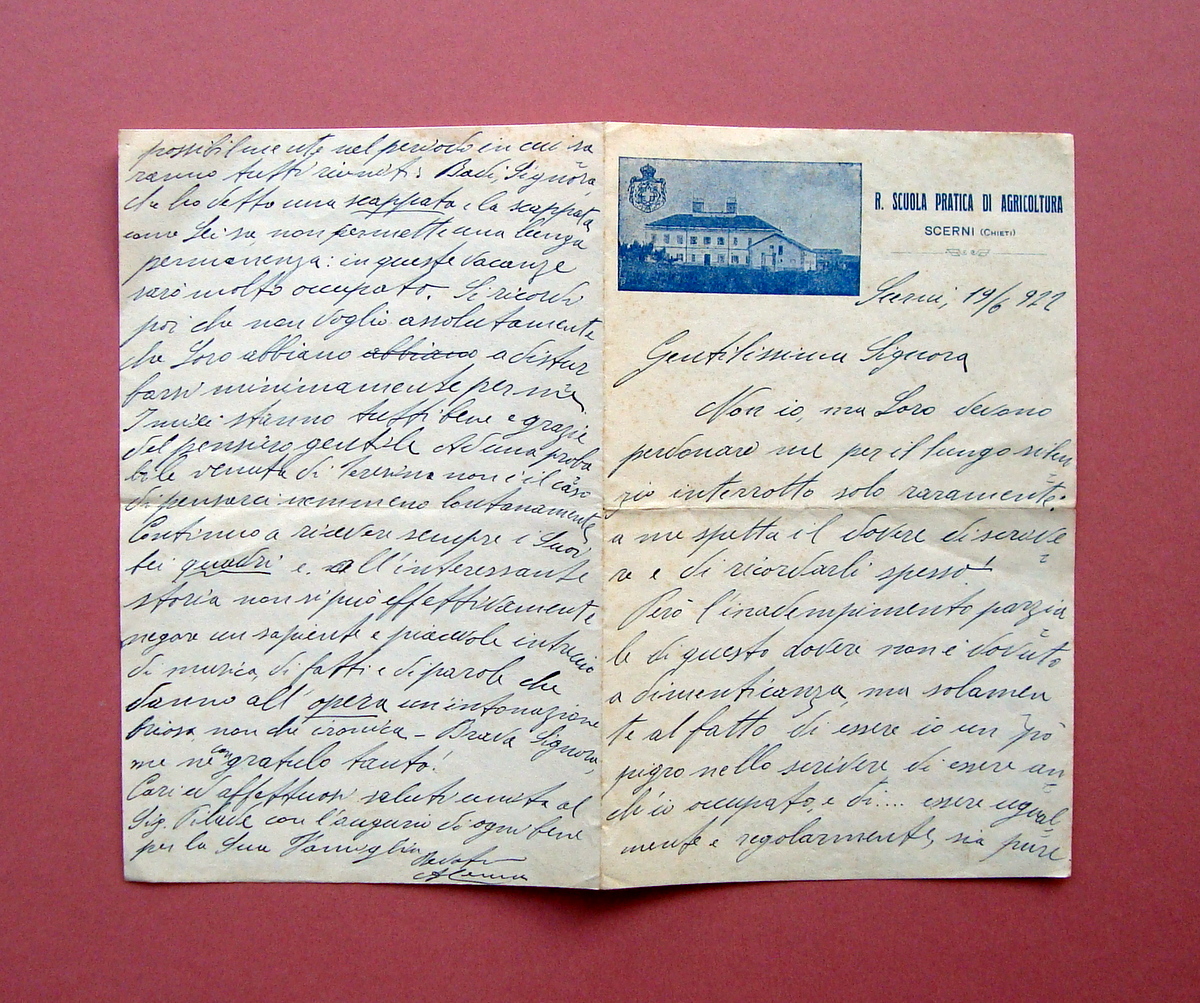 R. SCUOLA PRATICA DI AGRICOLTURA
SCERNI (CHIETI)
Scerni, 19/6 922
Gentilissima Signora
Non io, ma Loro devono
perdonare me per il lungo silen
zio interrotto solo raramente:
a me spetta il dovere di scrive
re e di ricordarli spesso!
Però l'inadempimento parzia
le di questo dovere non è dovuto
a dimenticanza, ma solamen
te al fatto di essere io un pò
pigro nello scrivere di essere an
ch'io occupato, e di.... essere ugual
mente e regolarmente, sia pure
possibilmente nel periodo in cui sa
ranno tutti riuniti: Badi, Signora
che ho detto una scappata e la scappata
come Lei sa non permette una lunga
permanenza: in queste vacanze
sarò molto occupato. Si ricordi
poi che non voglio assolutamente
che Loro abbiano abbiano a distur
barsi minimamente per me.
I miei stanno tutti bene e grazie
del pensiero gentile. Ad una proba
bile venuta di non è il caso
di pensarci nemmeno lontanamente
Continuo a ricevere sempre i Suoi
bei quadri e all'interessante
storia non si può effettivamente
negare un sapiente e piacevole intreccio
di musica, di fatti e di parole che
danno all'opera un'intonazione
briosa non che ironica - Brava Signora,
me ne congratulo tanto!
Cari ed affettuosi saluti uniti al
Sig. Pilade con l'augurio di ogni bene
per la Sua Famiglia